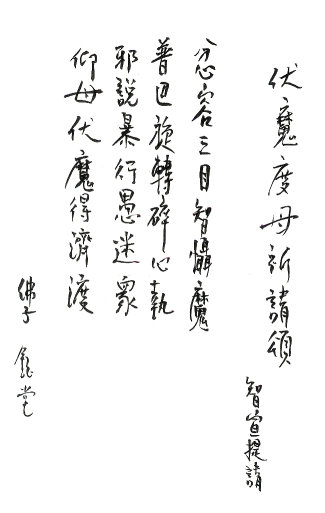 伏魔度母祈請頌
智宣提請
忿容三目智懾魔
普巴旋轉碎心執
邪說暴行愚迷眾
仰母伏魔得濟渡
佛子 鈺堂